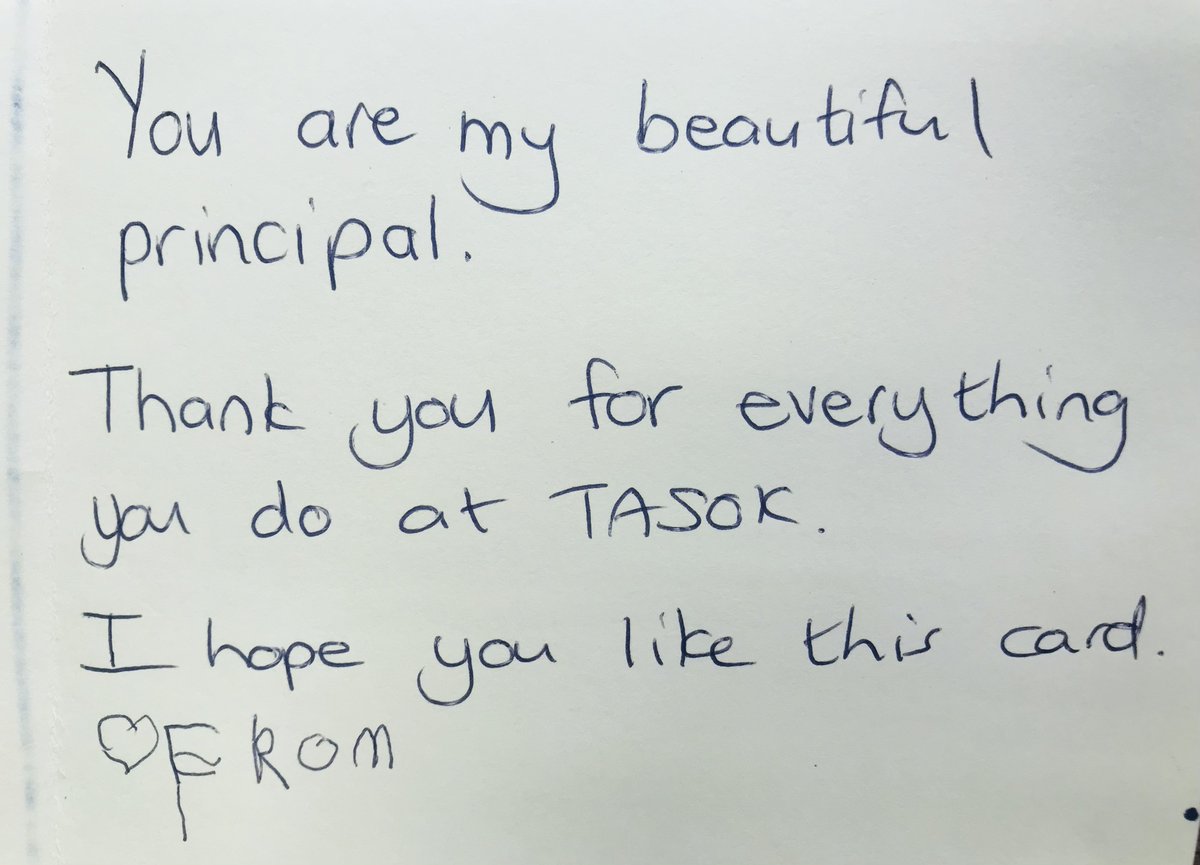 You are my beautiful
principal.
Thank you for everything
you do at TASOK.
I hope you like this card.
♡FROM